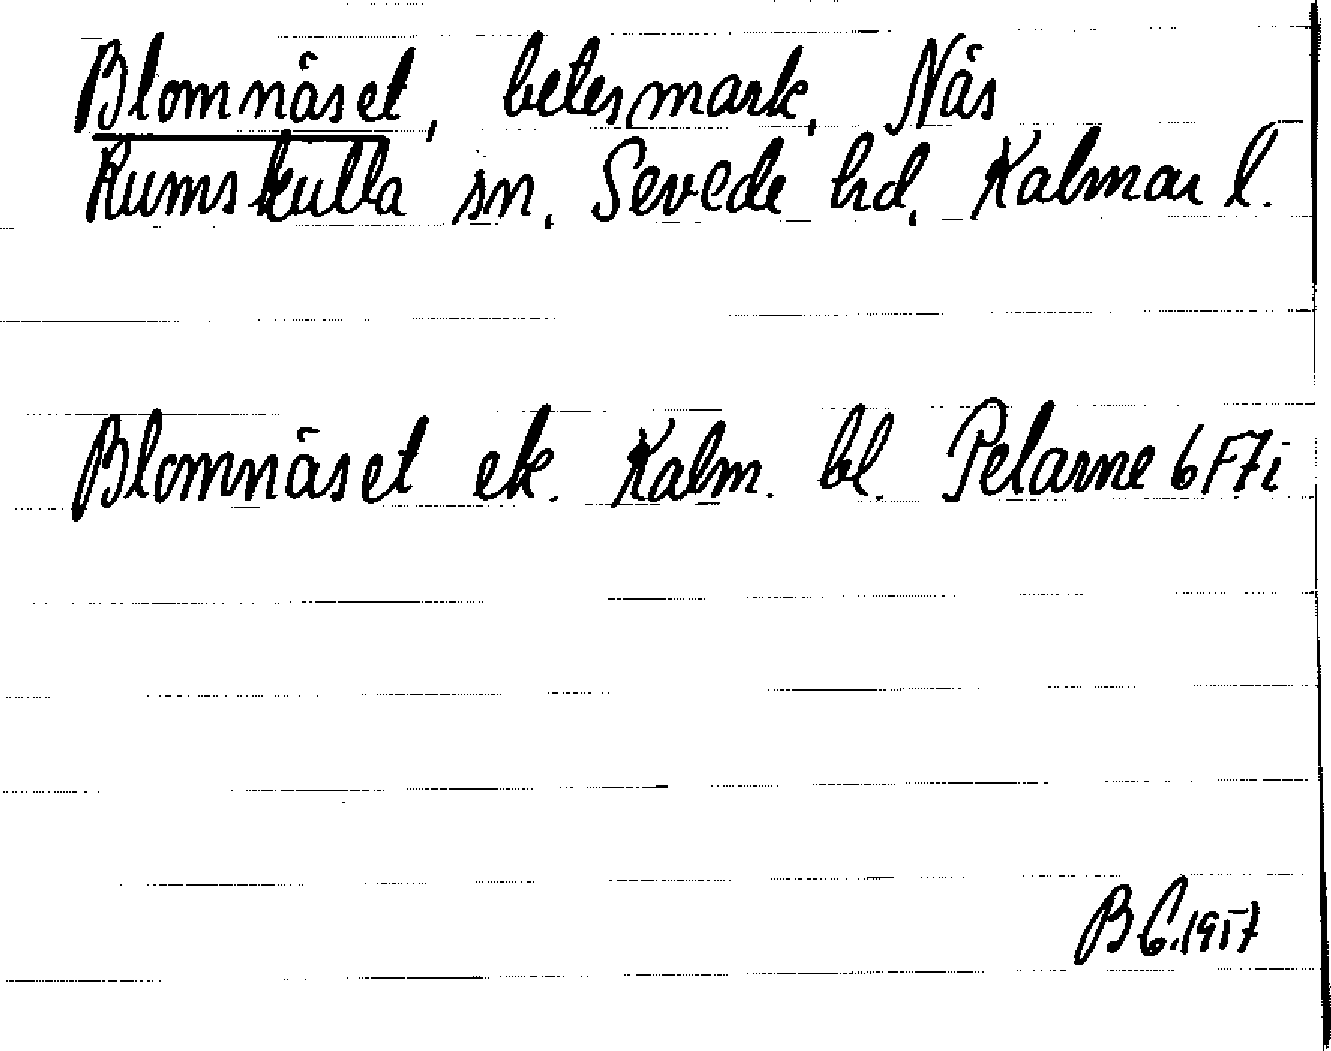 Blomnäset, betesmark, Näs
Rumskulla sn. Sevede hd. Kalmar l.
Blomnäset ek. Kalm. bl. Pelarne 6F7i
BG.1957